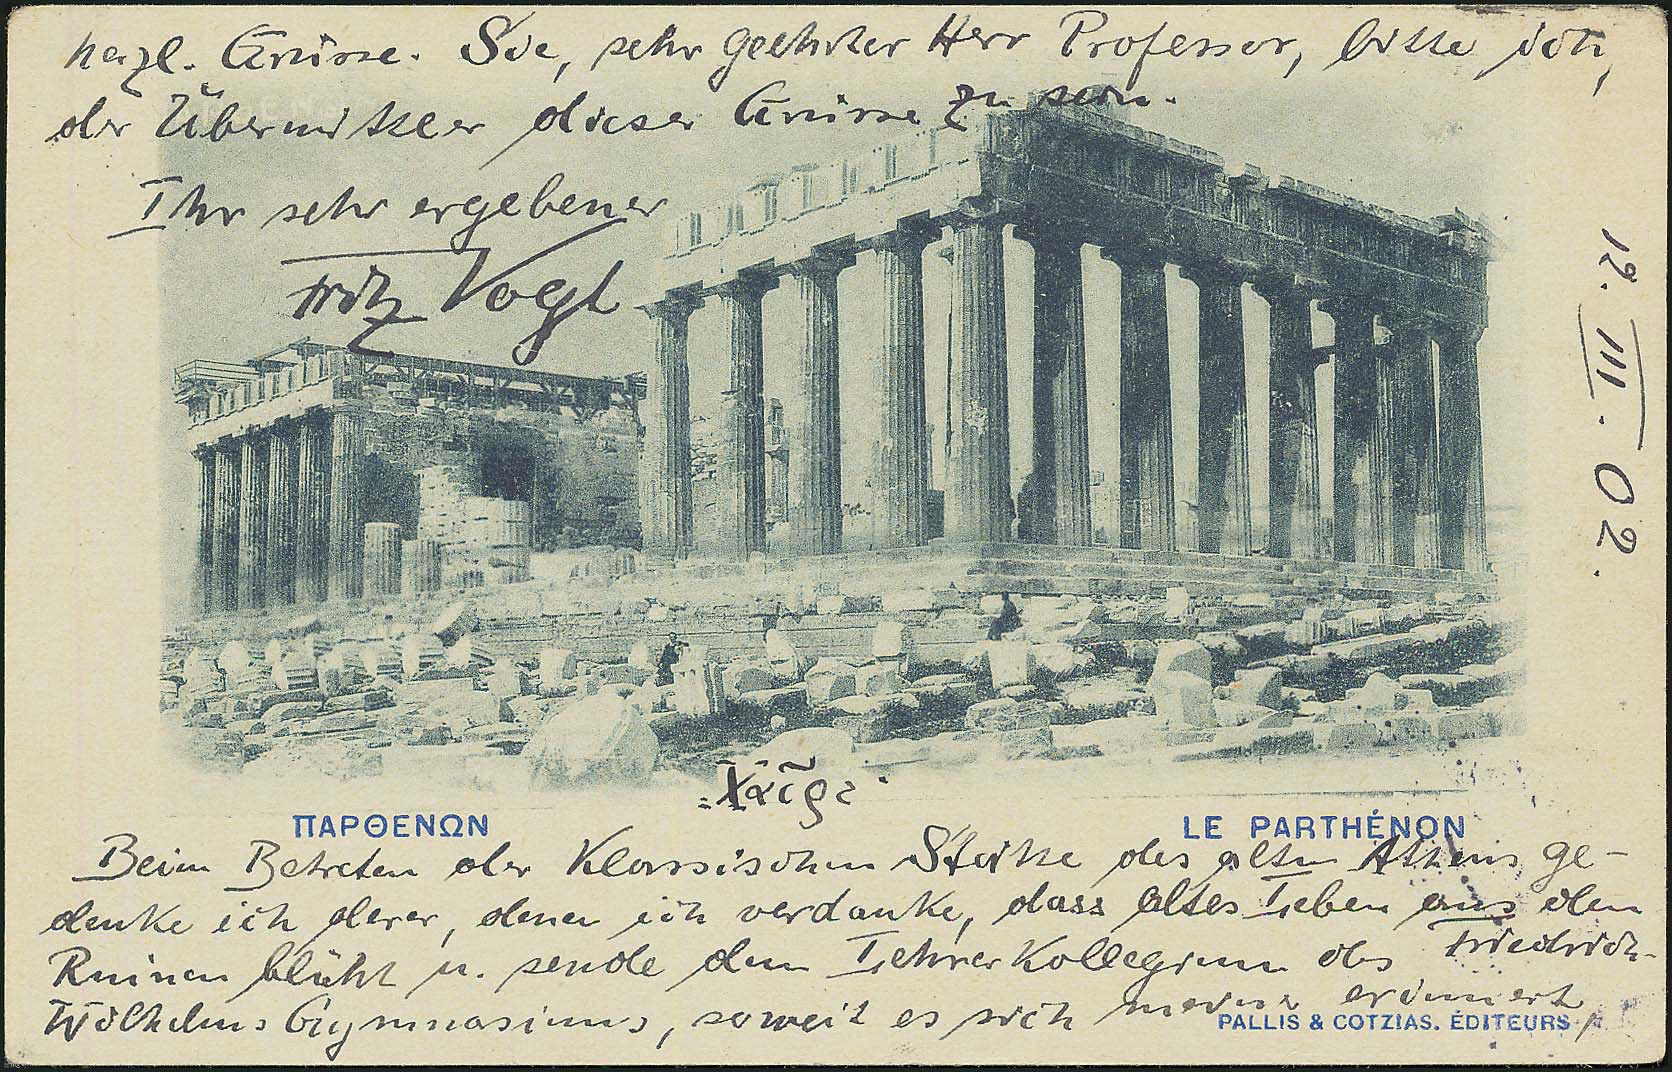 herzl. Grüsse. Sie, sehr geehrter Herr Professor, bitte ich,
der Übermittler dieser Grüsse zu sein.
Ihr sehr ergebener
Fritz Vogl
12. III. 02.
Χαῖρε
ΠΑΡΘΕΝΩΝ
LE PARTHÉNON
Beim Betreten der klassischen Stätte des alten Athens ge-
denke ich derer, denen ich verdanke, dass altes Leben aus den
Ruinen blüht u. sende dem Lehrerkollegium des Friedrich-
Wilhelms Gymnasiums, soweit es sich meiner erinnert,
PALLIS & COTZIAS. ÉDITEURS